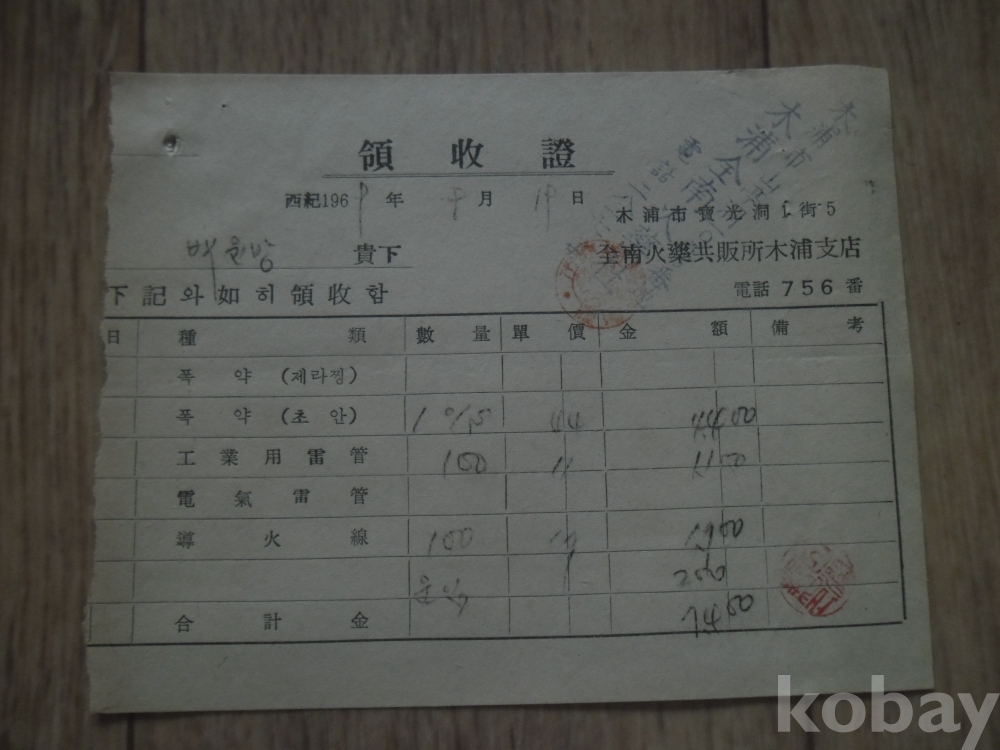 領收證
西紀196 年 月 19 日
木浦市寶光洞1街5
貴下
全南火藥共販所木浦支店
下記와如히領收함
電話 756 番
日 種類 數量 單價 金額 備考
폭약 (제라찡)
폭약 (초안) 44 4400
工業用雷管 100 11 1100
電氣雷管
導火線 100 19 1900
운임
合計金
kobay